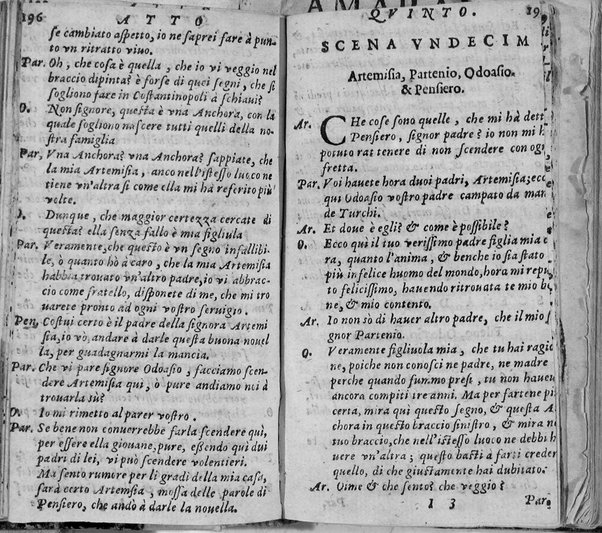 196 ATTO
se cambiato aspetto, io ne saprei fare à pun-
to vn ritratto viuo.
Par. Oh, che cosa è quella, che io vi veggio nel
braccio dipinta? è forse di quei segni, che si
sogliono fare in Costantinopoli a schiaui?
O. Non signore, questa è vna Anchora, con la
quale sogliono nascere tutti quelli della no-
stra famiglia
Par. Vna Anchora? vna Anchora? sappiate, che
la mia Artemisia, anco nell'istesso luoco ne
tiene vn'altra si come ella mi hà referito più
volte.
O. Dunque, che maggior certezza cercate di
questa? ella senza fallo è mia figliula
Par. Veramente, che questo è vn segno infallibi-
le, ò quanto hò à caro, che la mia Artemisia
habbia trouato vn'altro padre, io vi abbrac-
cio come fratello, disponete di me, che mi tro
uarete pronto ad ogni vostro seruigio.
Pen. Costui certo è il padre della signora Artemi
sia, io vò andare à darle questa buona nouel
la, per guadagnarmi la mancia.
Par. Che vi pare signore Odoasio, facciamo scen-
dere Artemisia qui, ò pure andiamo noi à
trouarla sù?
O. Io mi rimetto al parer vostro.
Par. Se bene non conuerrebbe farla scendere qui,
per essere ella giouane, pure, essendo qui dui
padri di lei, vi può scendere volentieri.
Ma sento rumore per li gradi della mia casa,
sarà certo Artemisia, mossa delle parole di
Pensiero, che andò à darle la nouella.
QVINTO. 19
SCENA VNDECIM
Artemisia, Partenio, Odoasio.
& Pensiero.
Ar. CHe cose sono quelle, che mi hà dett
Pensiero, signor padre? io non mi h
potuto rattenere di non scendere con ogn
fretta.
Par. Voi hauete hora duoi padri, Artemisia; ecc
qui Odoasio vostro padre campato da man
de Turchi.
Ar. Et doue è egli? & come è possibile?
O. Ecco qui il tuo verissimo padre figlia mia c
ra, quanto l'anima, & benche io sia stato
più infelice huomo del mondo, hora mi repu
to felicissimo, hauendo ritrouata te mio be
ne, & mio contento.
Ar. Io non sò di hauer altro padre, che il mio s
gnor Partenio.
O. Veramente figliuola mia, che tu hai ragio
ne, poiche non conosci ne padre, ne madre
perche quando fummo presi, tu non haueu
ancora compiti tre anni. Ma per fartene pi
certa, mira qui questo segno, & questa A
chora in questo braccio sinistro, & mira ne
tuo braccio, che nell'istesso luoco ne debbi h
uere vn'altra; questo basti à farti creder
quello, di che giustamente hai dubitato.
Ar. Oime & che sento? che veggio?
I 3 Par.